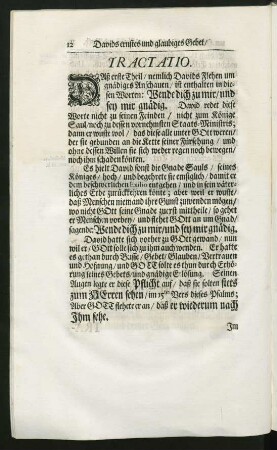 12 Davids ernstes und glaubiges Gebet/
TRACTATIO.
DAß erste Theil/ nemlich Davids Flehen um
gnädiges Anschauen/ ist enthalten in die-
sen Worten: Wende dich zu mir/ und
sey mir gnädig. David redet diese
Worte nicht zu seinen Feinden/ nicht zum Könige
Saul/ noch zu dessen vornehmsten Staats-Ministris;
dann er wuste wol/ das diese alle unter GOtt weren/
der sie gebunden an die Kette seiner Fürsehung/ und
ohne dessen Willen sie sich weder regen noch bewegen/
noch ihm schaden könten.
Es hielt David sonst die Gnade Sauls/ seines
Königes/ hoch/ und begehrete sie embsiglich/ damit er
dem beschwerlichen Exilio entgehen/ und in sein väter-
liches Erbe zurückkehren könte; aber weil er wuste/
daß Menschen niemand ihre Gunst zuwenden mögen/
wo nicht GOtt seine Gnade zuerst mittheile/ so gehet
er Menschen vorbey/ und flehet GOtt an um Gnad/
sagende: Wende dich zu mir/ und sey mir gnädig.
David hatte sich vorher zu GOtt gewand/ nun
wil er/ GOtt solle sich zu ihm auch wenden. Er hatte
es gethan durch Busse/ Gebet/ Glauben/ Vertrauen
und Hofnung/ und GOTT solte es thun durch Erhö-
rung seines Gebets/ und gnädige Erlösung. Seinen
Augen legte er diese Pflicht auf/ daß sie solten stets
zum HErren sehen/ im 15ten Vers dieses Psalms;
Aber GOTT flehete er an/ daß er wiederum nach
Jhm sehe.
Im